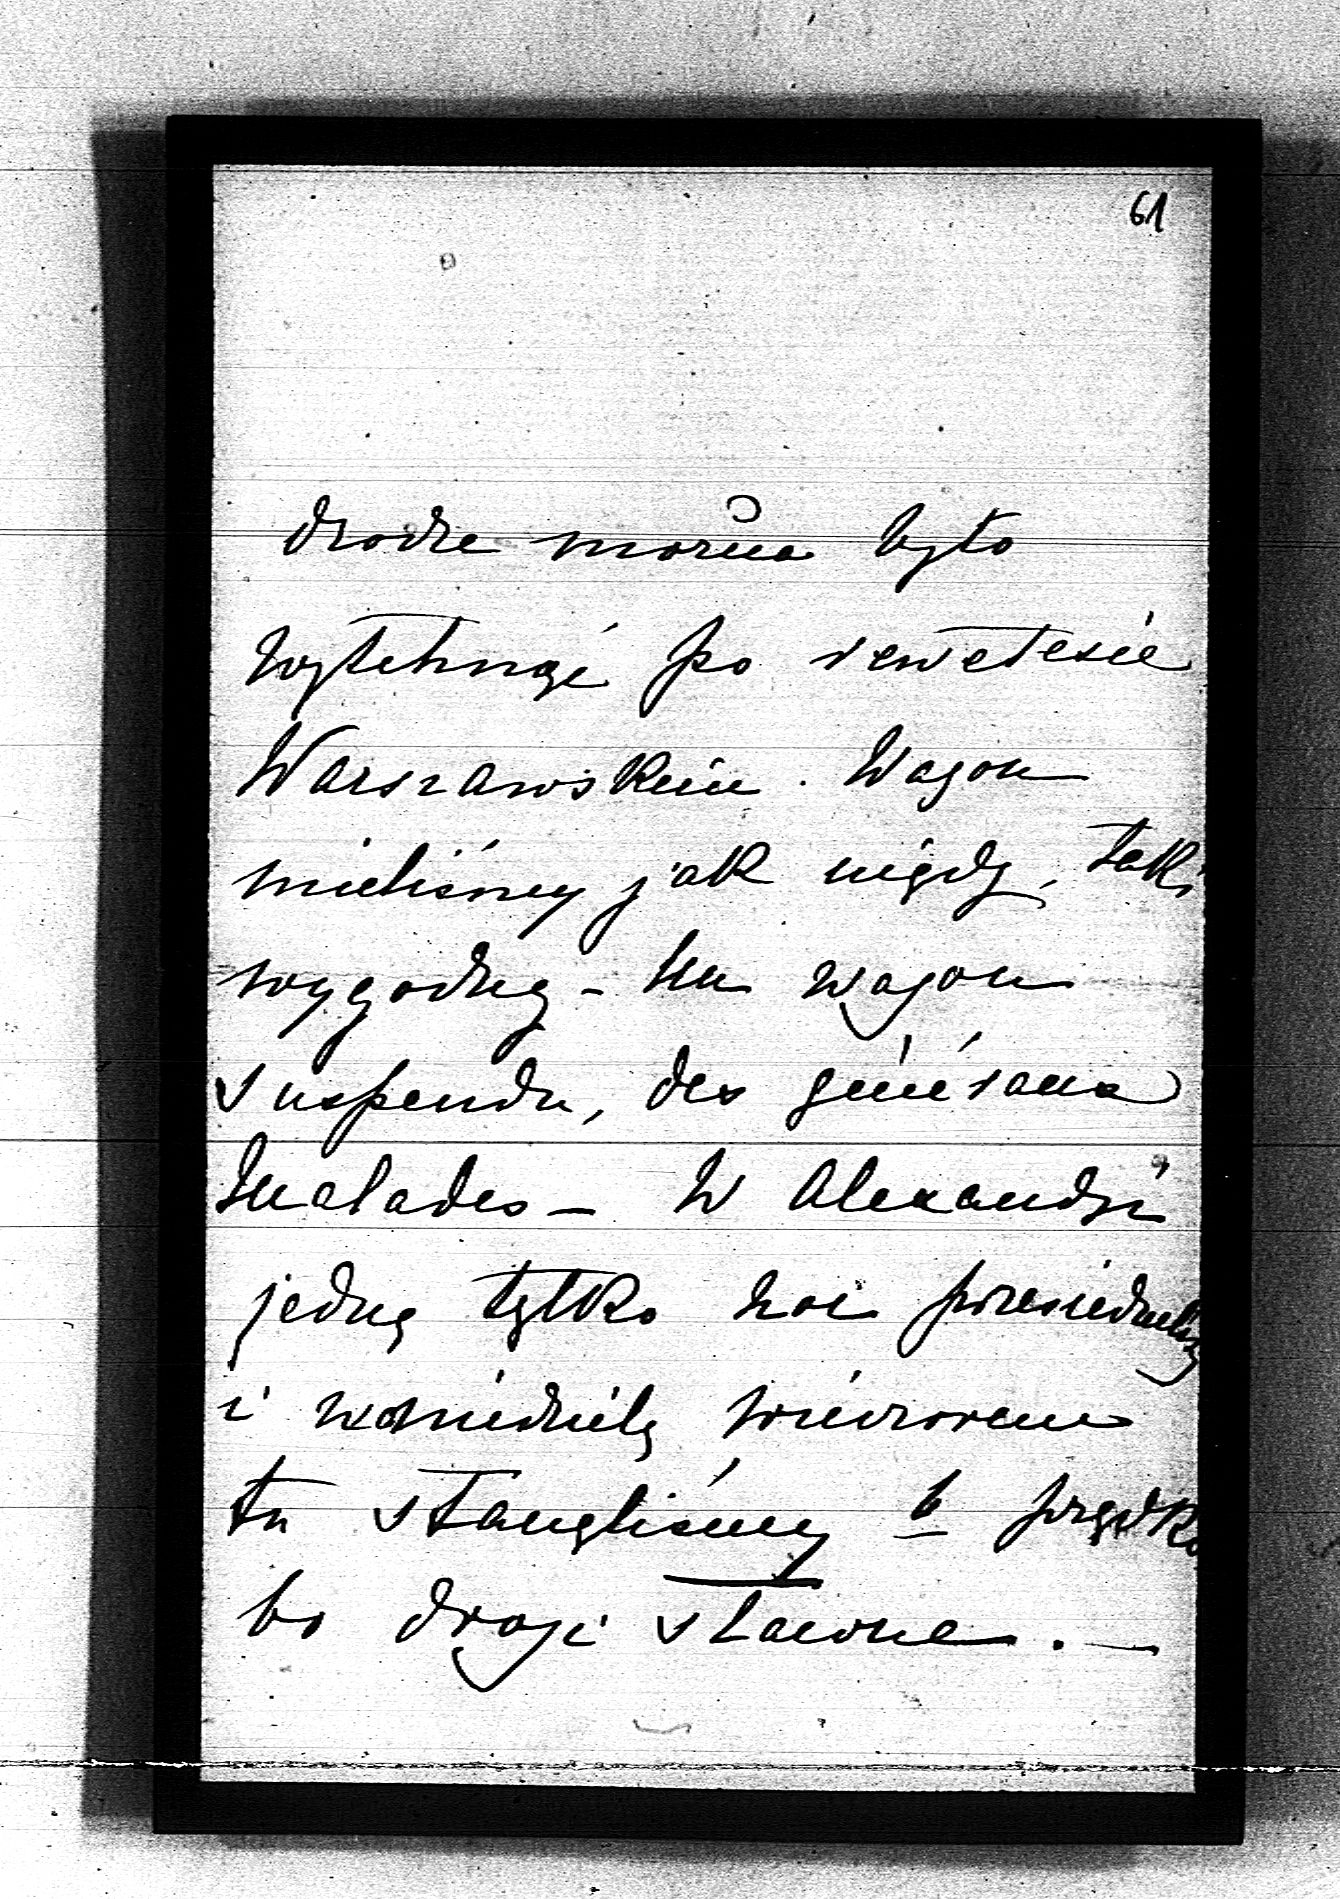 61
drodze można było
wytchnąć po rewetesie
Warszawskim. Wagon
mieliśmy jak nigdy, taki
wygodny – un wagon
suspendu, des généraux
malades – W Alexandrji
jedną tylko noc przesiedzieliśmy
i w niedzielę wieczorem
tu stanęliśmy b prędko
bo drogi sławne. —